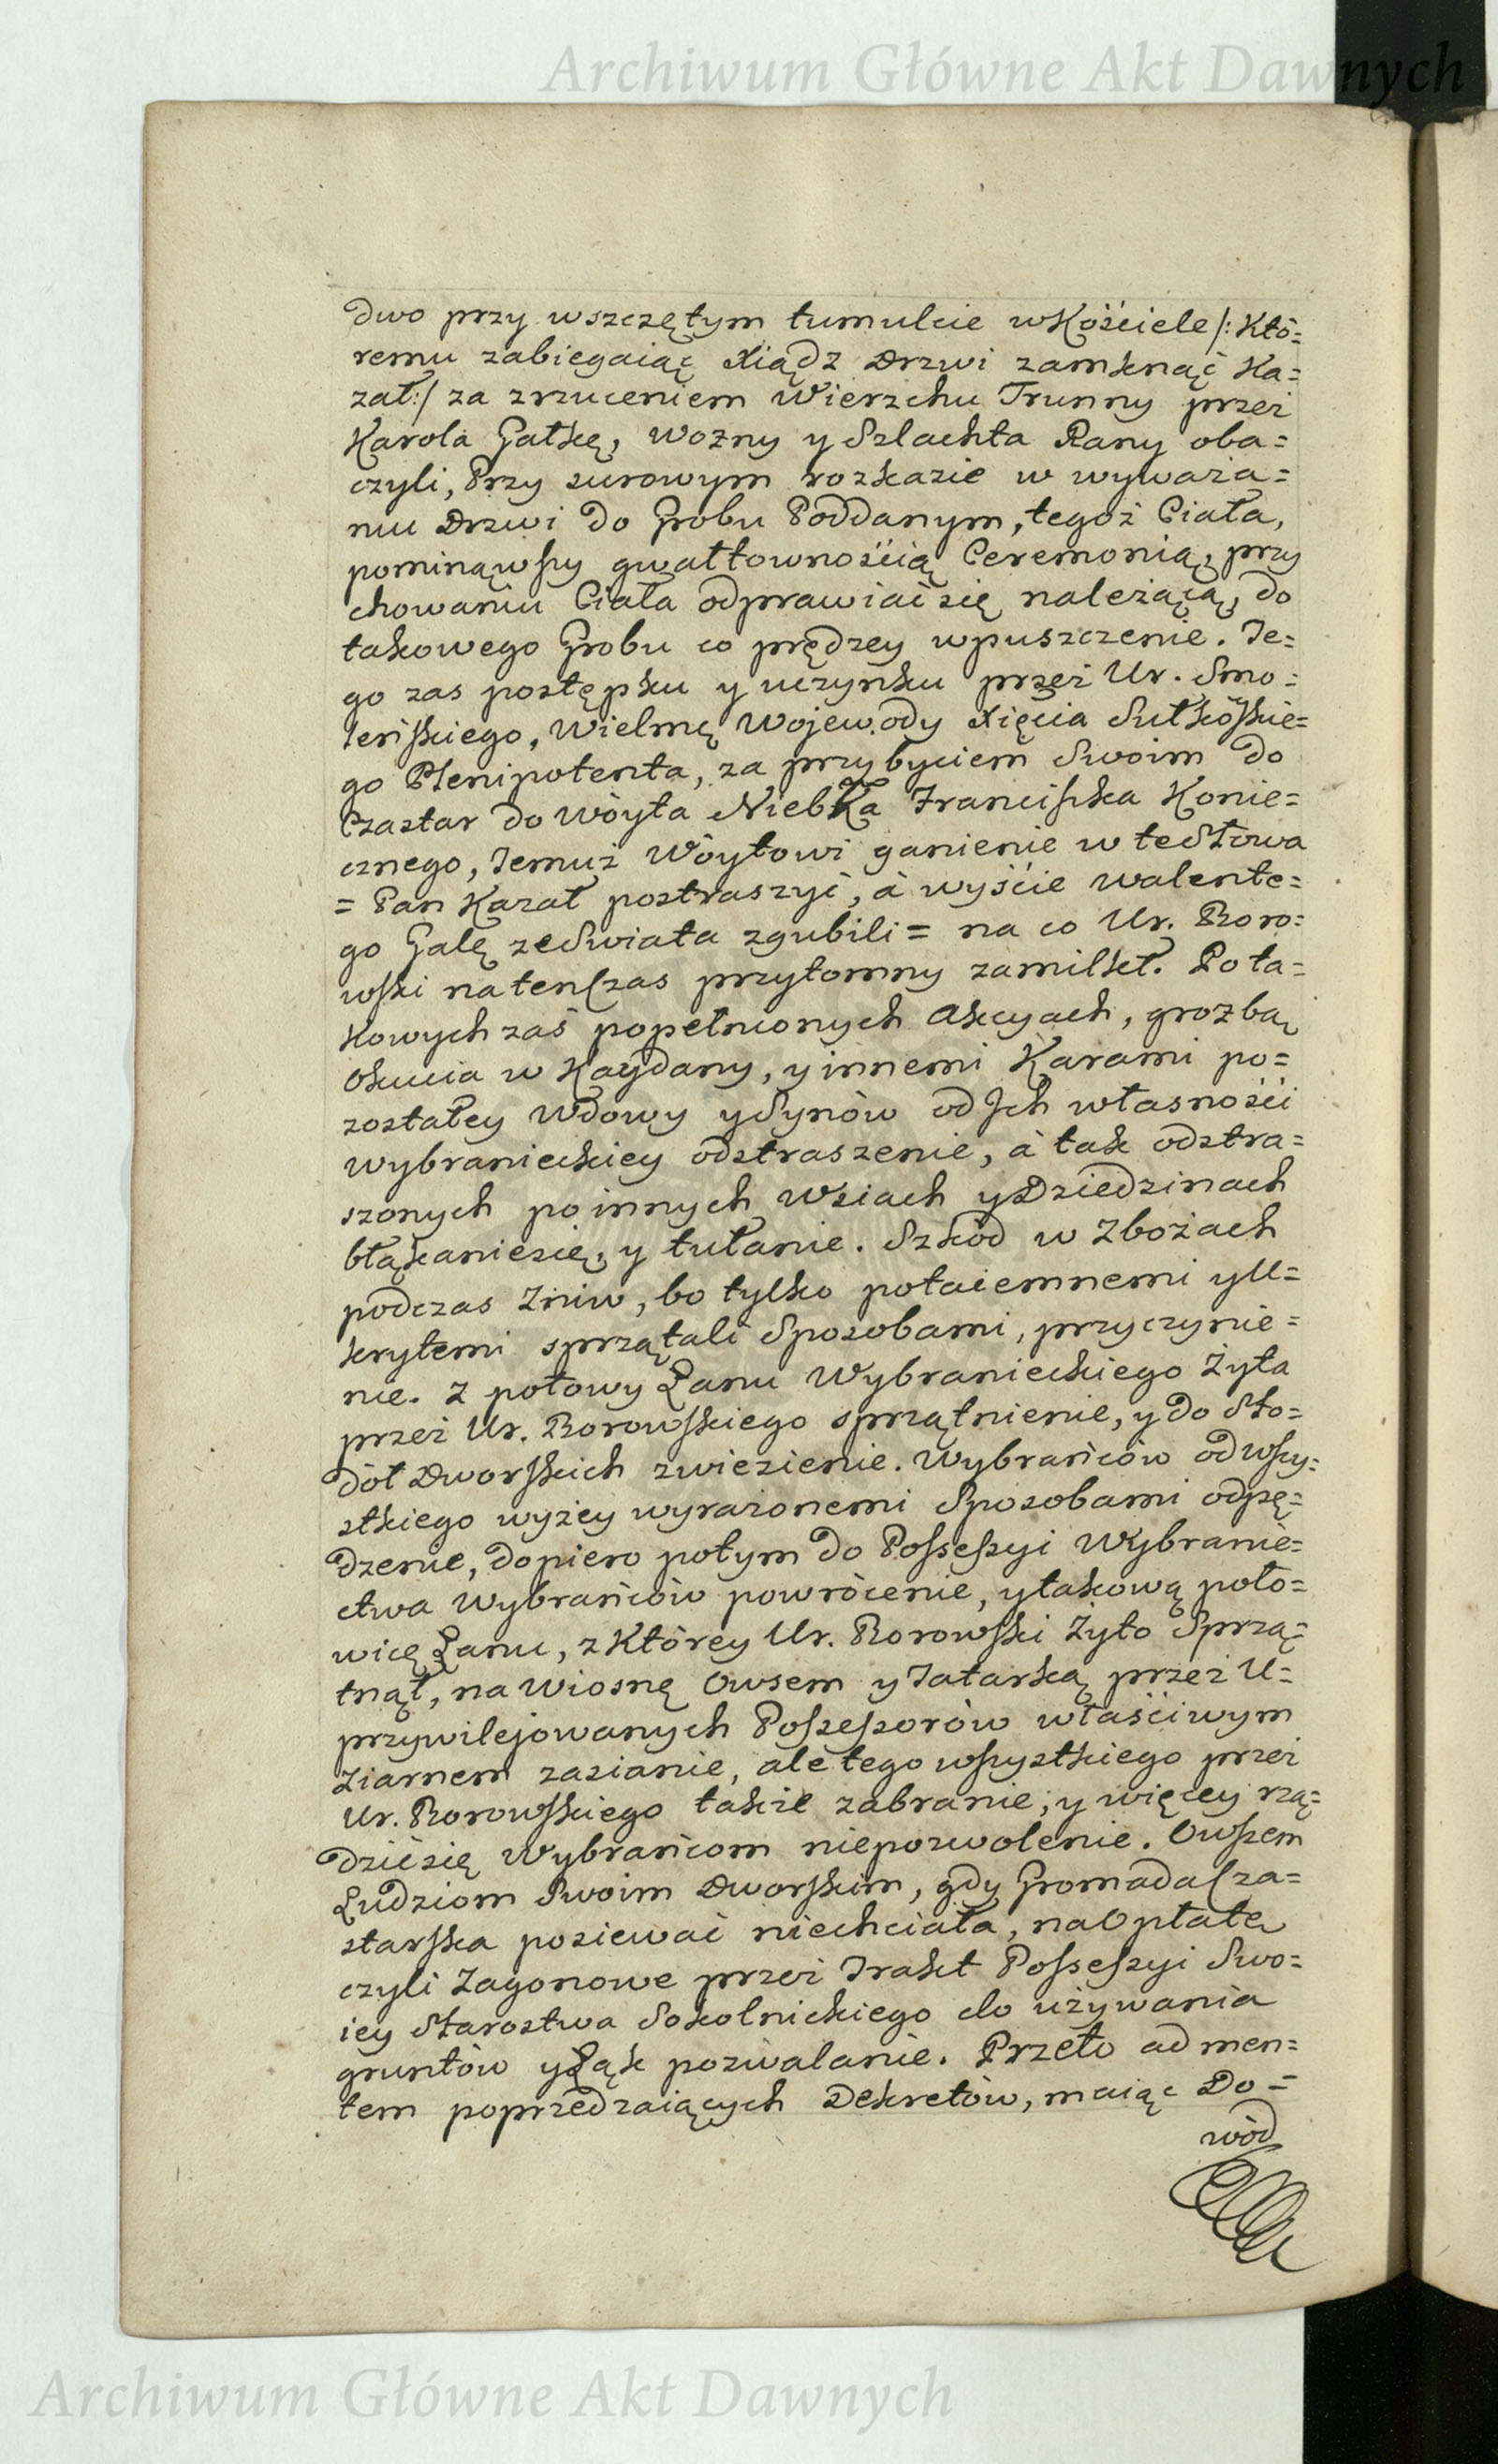 Archiwum Główne Akt Dawnych
dwo przy wszczętym tumulcie w Kościele /: Któ=
remu zabiegaiąc Xiądz Drzwi zamknąć Ka=
zał :/ za zrzuceniem Wierzchu Trunny przez
Karola Gałkę, Wozny y Szlachta Rany oba=
czyli, Przy surowym rozkazie w wyważa=
niu Drzwi do Grobu Poddanym, tegoż Ciała,
pominąwszy gwałtownością Ceremonią, przy
chowaniu Ciała odprawiać się należącą, do
takowego Grobu co prędzey wpuszczenie. Te=
go zas postępku y uczynku przez Ur. Smo=
leńskiego, Wielmę Wojewody Xięcia Sułkoskie=
go Plenipotenta, za przybyciem Swoim do
Czastar do Wóyta Niebka Franciszka Konie=
cznego, Temuż Wóytowi ganienie w te Słowa
= Pan Kazał postraszyć, à wyście Walente=
go Galę ze Swiata zgubili = na co Ur. Boro=
wski na ten Czas przytomny zamilkł. Po ta=
kowych zaś popełnionych Akcyach, groźbą
Okucia w Kaydany, y innemi Karami po=
zostałey Wdowy y Synów od Ich własności
Wybranieckiey odstraszenie, à tak odstra=
szonych po innych Wsiach y Dziedzinach
błąkanie się, y tułanie. Szkód w Zbożach
podczas Zniw, bo tylko potaiemnemi y U=
krytemi sprzątali Sposobami, przyczynie=
nie. Z połowy Łanu Wybranieckiego Żyta
przez Ur. Borowskiego sprzątnienie, y do Sto=
dół Dworskich zwiezienie. Wybrańców od wszy=
stkiego wyżey wyrażonemi Sposobami odpę=
dzenie, dopiero potym do Possessyi Wybranie=
ctwa Wybrańców powrócenie, y takową poło=
wicę Łanu, z Którey Ur. Borowski Żyto Sprzą=
tnął, na Wiosnę Owsem y Tatarką przez U=
przywilejowanych Possessorów właściwym
Ziarnem zasianie, ale tego wszystkiego przez
Ur. Borowskiego także zabranie, y więcey rzą=
dzić się Wybrańcom niepozwolenie. Owszem
Ludziom Swoim Dworskim, gdy Gromada Cza=
starska posiewać niechciała, na Opłatę
czyli Zagonowe przez Trakt Possessyi Swo=
iey Starostwa Sokolnickiego do używania
gruntów y Łąk pozwalanie. Przeto ad men=
tem poprzedzaiących Dekretów, maiąc Do=
wód
Archiwum Główne Akt Dawnych